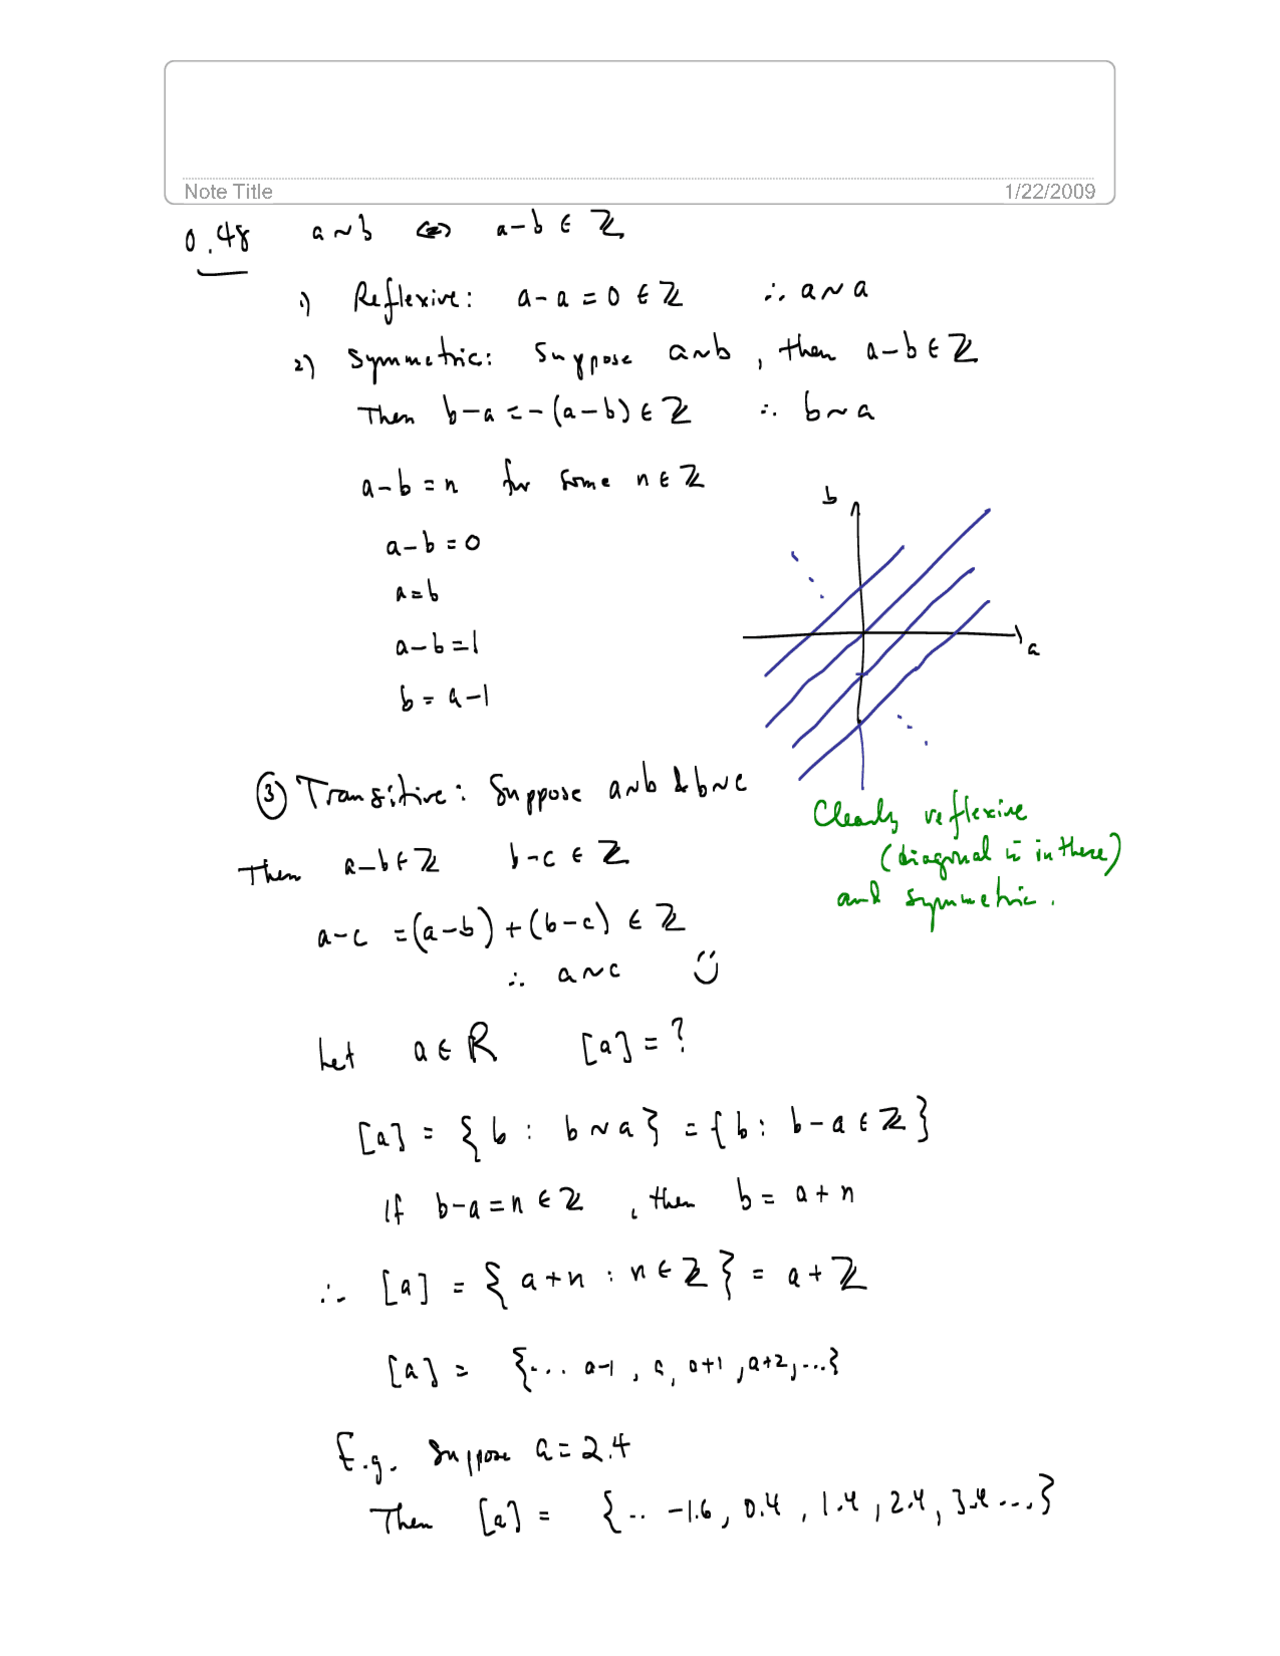 Note Title 1/22/2009
0.48 a ~ b ⇔ a-b ∈ ℤ
1) Reflexive: a-a = 0 ∈ ℤ ∴ a ~ a
2) Symmetric: Suppose a~b, then a-b ∈ ℤ
Then b-a = -(a-b) ∈ ℤ ∴ b ~ a
a-b = n for some n ∈ ℤ
b
a-b = 0
a = b
a-b = 1
a
b = a-1
③ Transitive: Suppose a~b & b~c
Clearly reflexive
(diagonal is in there)
and symmetric.
Then a-b ∈ ℤ b-c ∈ ℤ
a-c = (a-b) + (b-c) ∈ ℤ
∴ a~c ☺
Let a ∈ ℝ [a] = ?
[a] = { b : b ~ a } = { b : b-a ∈ ℤ }
If b-a = n ∈ ℤ, then b = a+n
∴ [a] = { a+n : n ∈ ℤ } = a + ℤ
[a] = {... a-1, a, a+1, a+2, ...}
E.g. Suppose a = 2.4
Then [a] = {.. -1.6, 0.4, 1.4, 2.4, 3.4 ...}